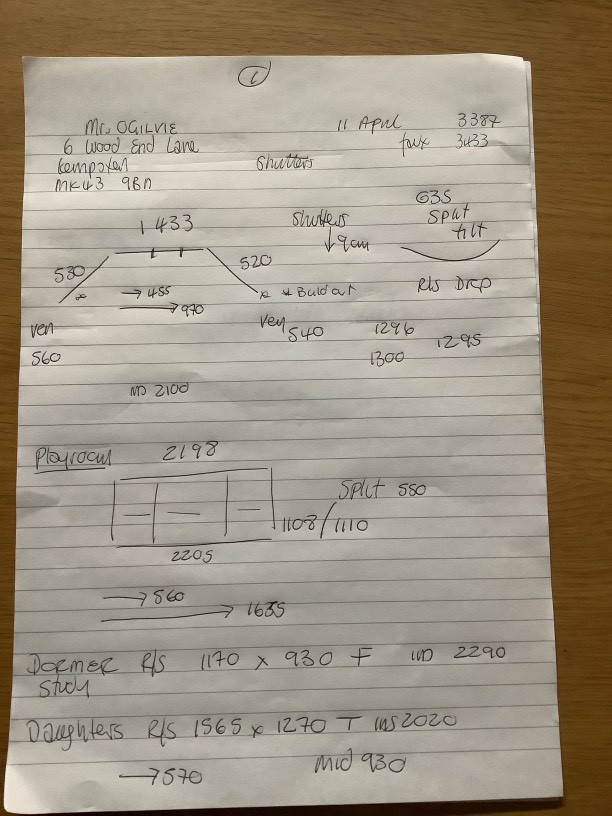 1
Mr. OGILVIE 11 April 3387
6 Wood End Lane faux 3433
Kempston Shutters
MK43 9BN
1433 Shutters 635
↓ 9cm Split
tilt
530 520
→ 455 * Buildout R/s Drp
→ 970
ven ven 540 1296 1295
560 1300
IND 2100
Playroom 2198
Split 550
1108/1110
2205
→ 560
→ 1635
DORMER R/S 1170 x 930 F IND 2290
Study
Daughters R/S 1565 x 1270 T ins 2020
→ 570 Mid 930